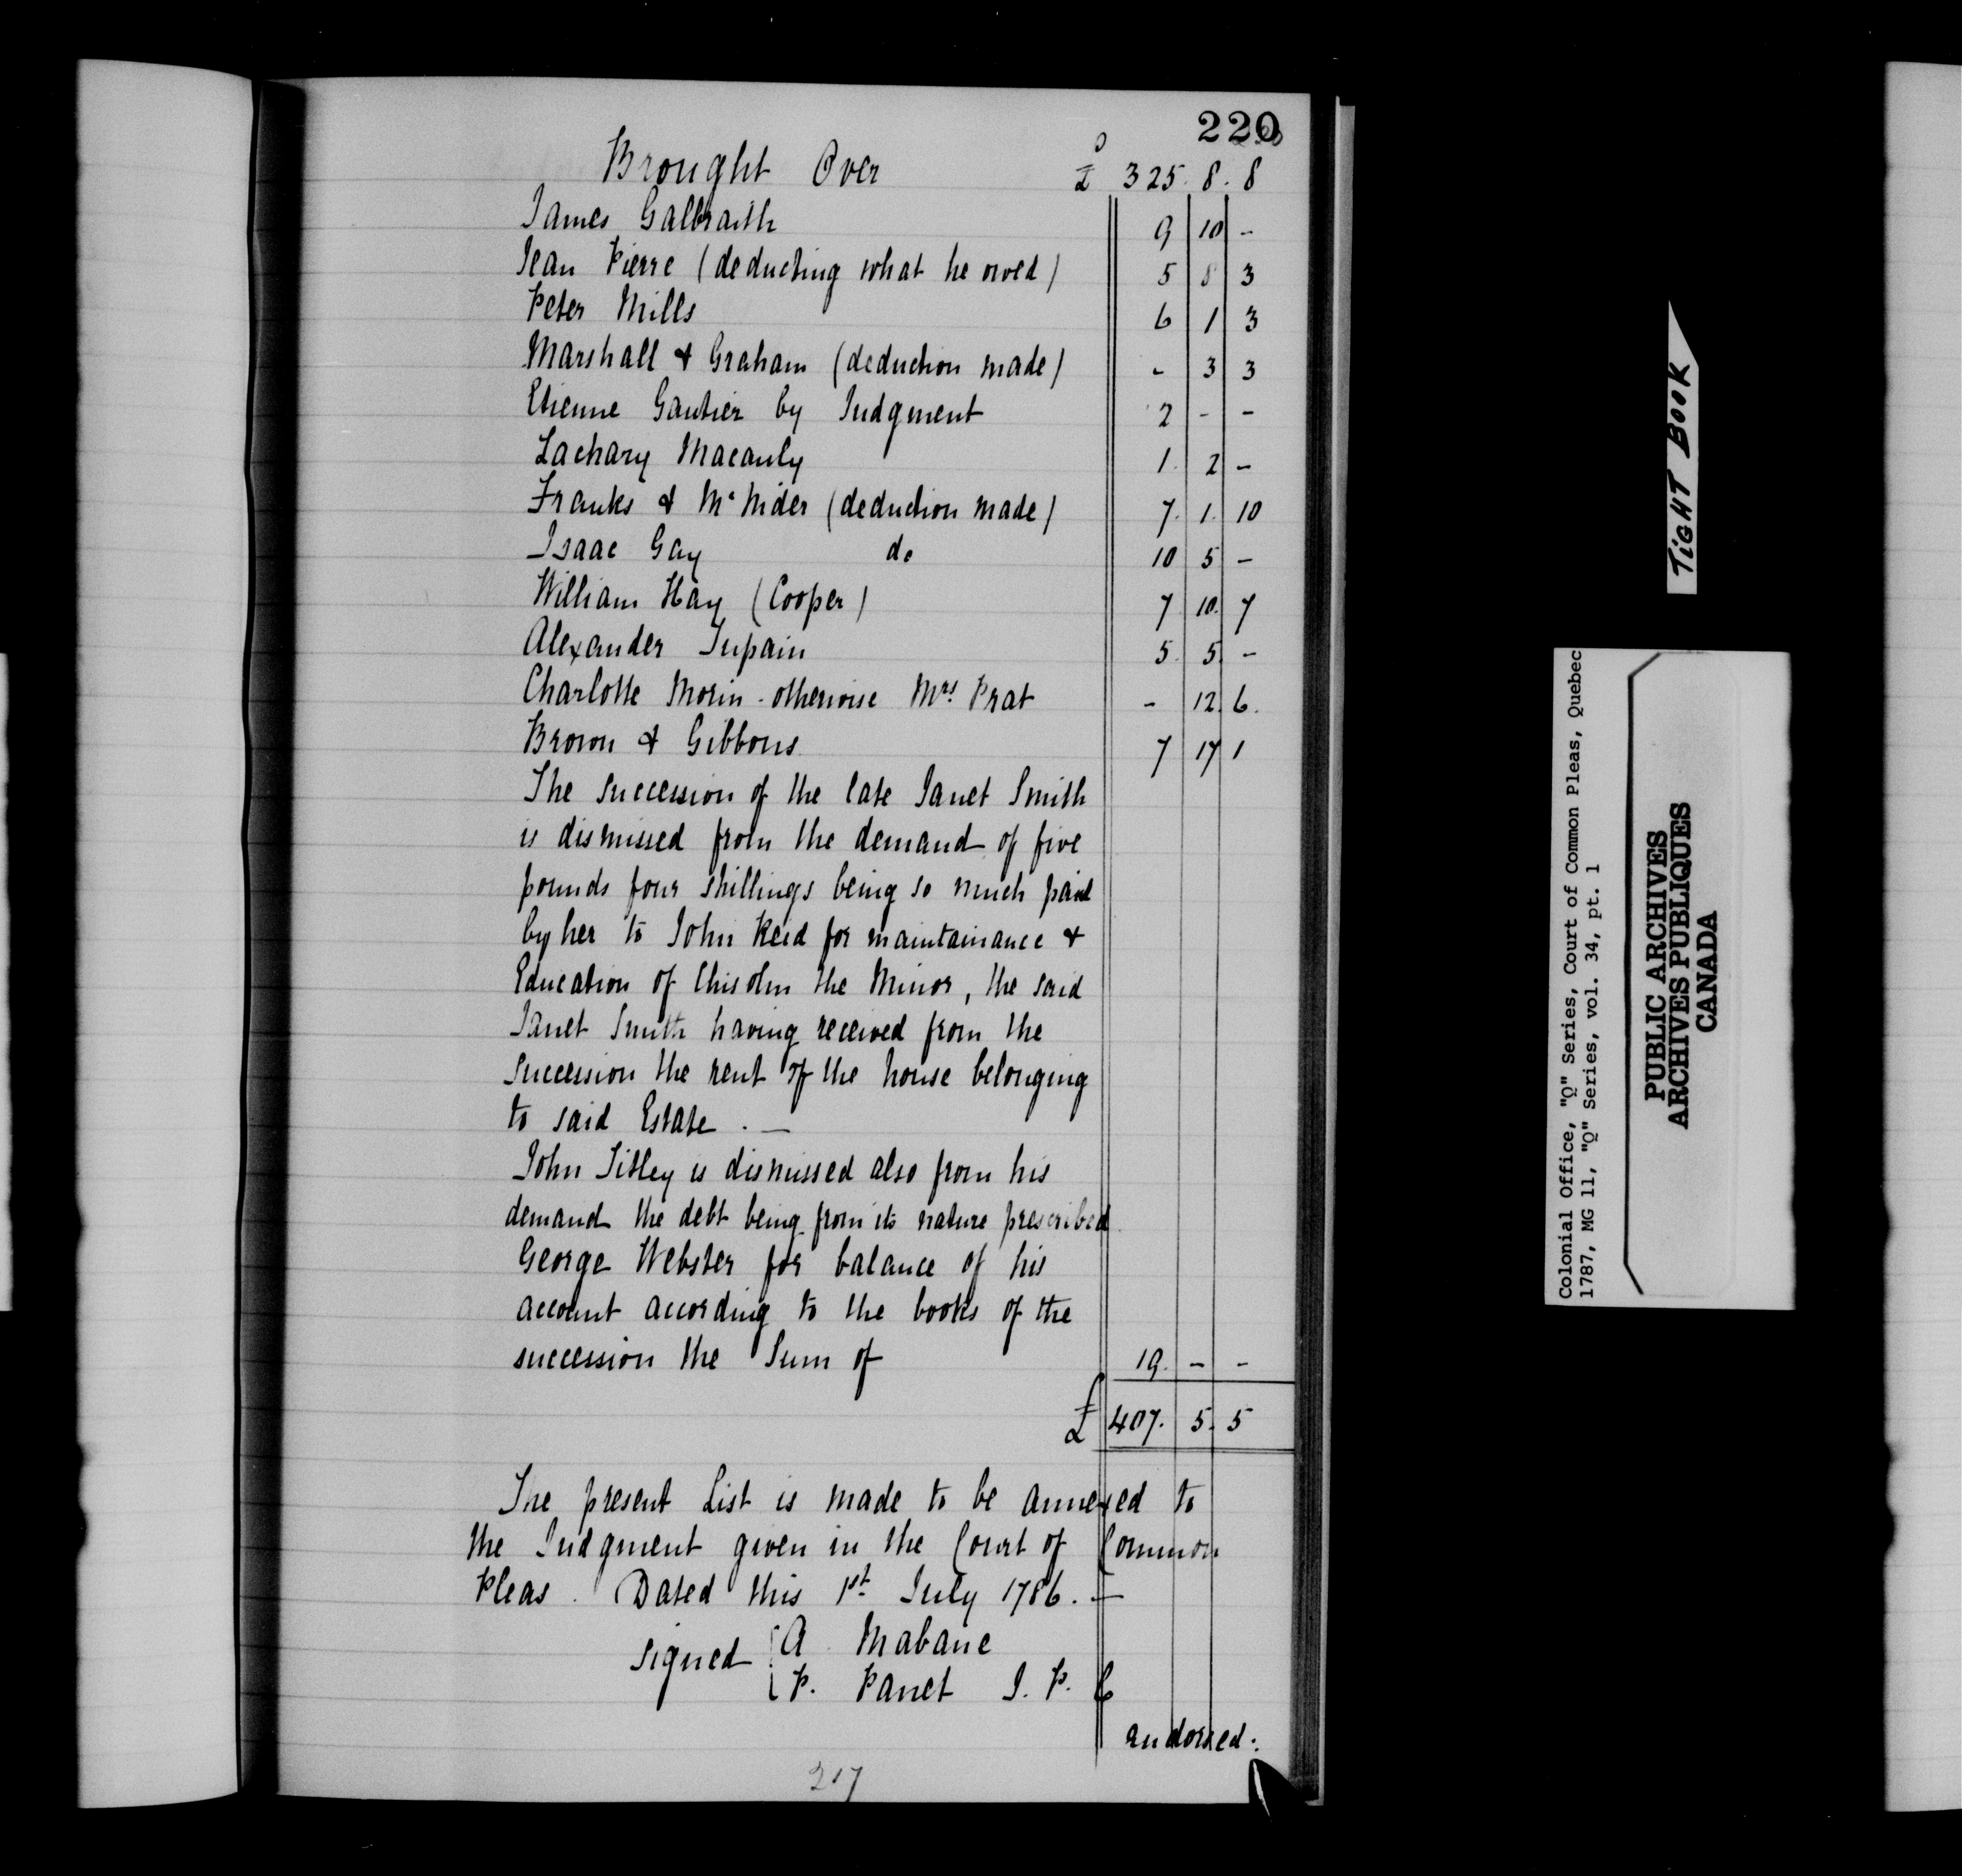 220
Brought Over £ 325. 8. 8
James Galbraith 9 10 -
Jean Pierre (deducting what he owed) 5 8 3
Peter Mills 6 1 3
Marshall & Graham (deduction made) - 3 3
Etienne Gautier by Judgment 2 - -
Zachary Macauly 1. 2 -
Franks & Mc Nider (deduction made) 7. 1. 10
Isaac Gay do 10 5 -
William Hay (Cooper) 7 10. 7
Alexander Jupain 5. 5. -
Charlotte Morin - otherwise Mrs. Prat - 12. 6.
Brown & Gibbons 7 17 1
The Succession of the late Janet Smith
is dismissed from the demand of five
pounds four shillings being so much paid
by her to John Reid for maintainance &
Education of Chisolm the Minor, the said
Janet Smith having received from the
succession the rent of the house belonging
to said Estate. —
John Sibley is dismissed also from his
demand the debt being from its nature prescribed
George Webster for balance of his
account according to the books of the
succession the Sum of 19. - -
£ 407. 5. 5
The present List is made to be annexed to
the Judgment given in the Court of Common
Pleas. Dated this 1st July 1786. —
signed { A Mabane
P. Panet J. P. C
endorsed.
217
TiGHT BOOK
Colonial Office, "Q" Series, Court of Common Pleas, Quebec
1787, MG 11, "Q" Series, vol. 34, pt. 1
PUBLIC ARCHIVES
ARCHIVES PUBLIQUES
CANADA